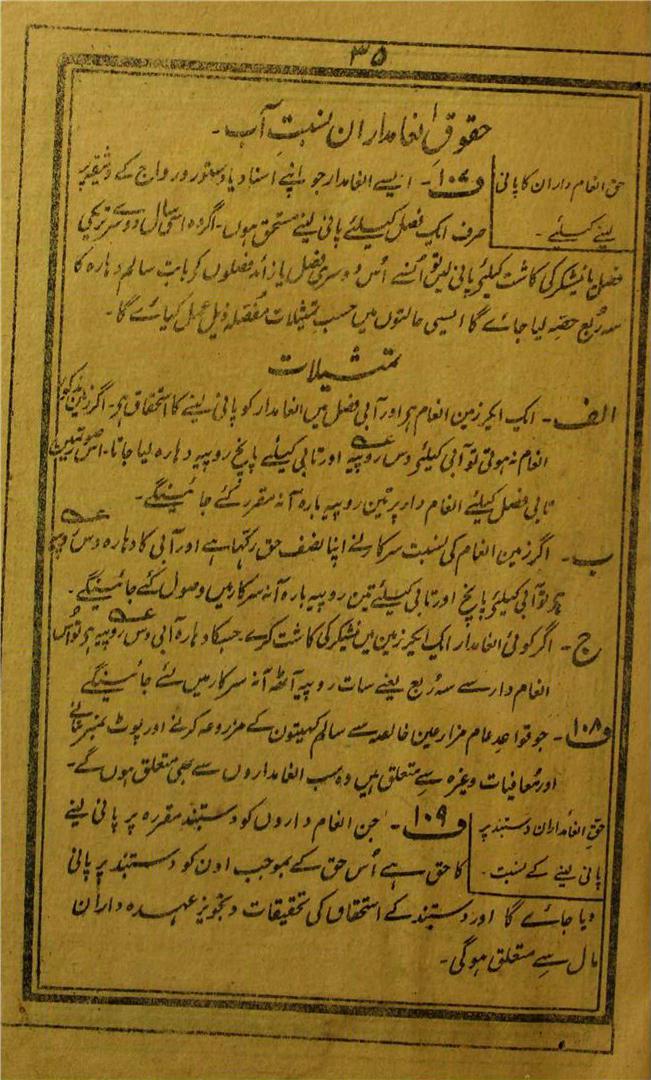 ۳۵
حقوقِ انعامداران نسبتِ آب۔
حق انعام داران کا پانی
لینے کیلئے۔
ف۱۰۷۔ ایسے انعامدار جو اپنے اسناد یا دستور و رواج کے وثیقہ پر
صرف ایک فصل کیلئے پانی لینے کے مستحق ہوں۔ اگر وہ اسی سال دوسرے تری کی
فصل یا نیشکر کی کاشت کیلئے پانی لیں تو انسے اُس دوسری فصل یا زائد فصلوں کے بابت سالم دہارہ کا
سہ رُبع حصّہ لیا جاے گا ایسی حالتوں میں حسب تمثیلات مفصلہ ذیل عمل کیا جاے گا۔
تمثیلات
الف۔ ایک ایکر زمین انعام ہو اور آبی فصل میں انعامدار کو پانی لینے کا استحقاق ہو۔ اگر زمین مذکور
انعام نہ ہوتی تو آبی کیلئے دس روپیہ اور تابی کیلئے پانچ روپیہ دہارہ لیا جاتا۔ اس صورت میں
تابی فصل کیلئے انعام دار پر تین روپیہ بارہ آنہ مقرر کئے جائینگے۔
ب۔ اگر زمین انعام کی نسبت سرکار نے اپنا نصف حق رکہا ہے اور آبی کا دہارہ دس روپیہ
ہو تو آبی کیلئے پانچ اور تابی کیلئے تین روپیہ بارہ آنہ سرکار میں وصول کئے جائینگے۔
ج۔ اگر کوئی انعامدار ایک ایکر زمین میں نیشکر کی کاشت کرے جسکا دہارہ آبی دس روپیہ ہو تو اُس
انعام دار سے سہ رُبع یعنے سات روپیہ آٹھ آنہ سرکار میں لئے جائینگے
ف۱۰۸۔ جو قواعد عام مزارعین خالصہ سے سالم کہیتوں کے مزروعہ کرنے اور پوٹ نمبر بنانے
اور معافیات وغیرہ سے متعلق ہیں وہ سب انعامداروں سے بھی متعلق ہوں گے۔
حقِ انعامداران دستبند پر
پانی لینے کے نسبت۔
ف۱۰۹۔ جن انعام داروں کو دستبند مقررہ پر پانی لینے
کا حق ہے اُس حق کے بموجب اون کو دستبند پر پانی
دیا جاے گا اور دستبند کے استحقاق کی تحقیقات و تجویز عہدہ داران
مال سے متعلق ہوگی۔